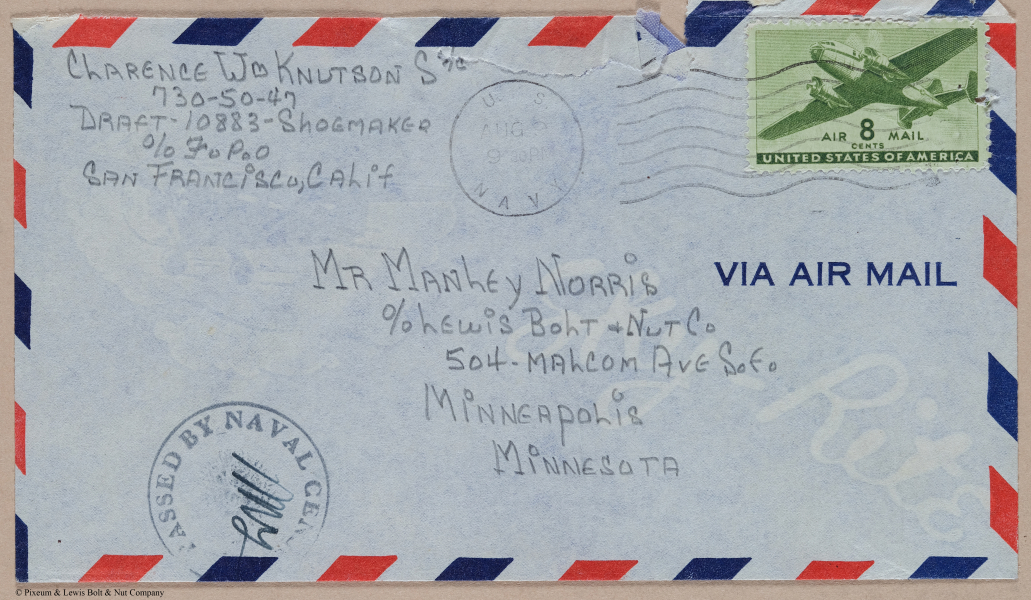 CLARENCE WM KNUTSON S 2/C
730-50-47
DRAFT-10883-SHOEMAKER
% F.P.O
SAN FRANCISCO, CALIF
U S
AUG
9 30 PM
NAVY
AIR 8 MAIL
CENTS
UNITED STATES OF AMERICA
VIA AIR MAIL
MR MANLEY NORRIS
% LEWIS BOLT & NUT CO
504-MALCOM AVE S.E.
MINNEAPOLIS
MINNESOTA
PASSED BY NAVAL CEN
Sky-Rite
© Pixeum & Lewis Bolt & Nut Company